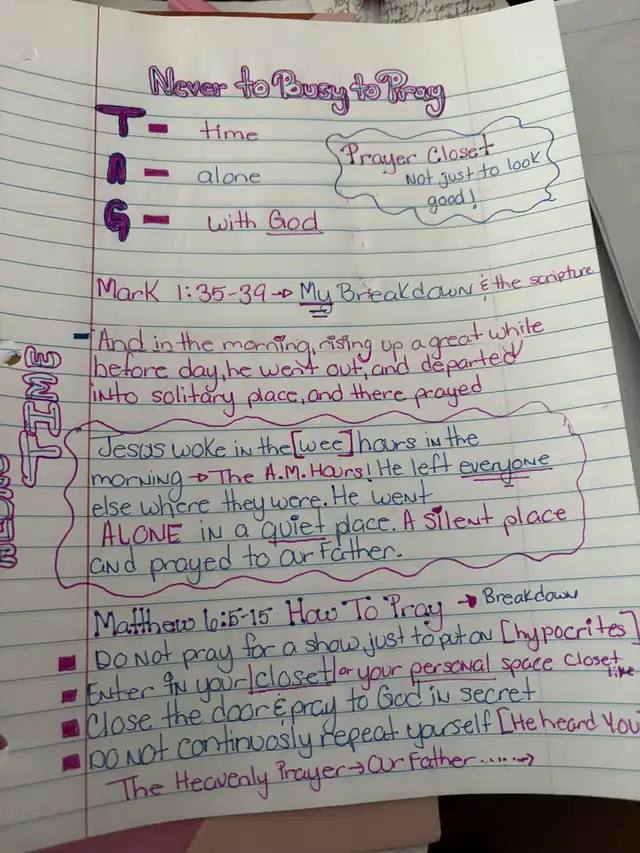 Never to Busy to Pray
T - time
A - alone
G - with God
Prayer Closet
Not just to look
good!
Mark 1:35-39 → My Breakdown & the scripture
- And in the morning, rising up a great while
before day, he went out, and departed
into solitary place, and there prayed
TIME
Jesus woke in the [wee] hours in the
morning → The A.M. Hours! He left everyone
else where they were. He went
ALONE in a quiet place. A Silent place
and prayed to our Father.
Matthew 6:5-15 How To Pray → Breakdown
DO NOT pray for a show just to put on [hypocrites]
Enter in your [closet] or your personal space closet like
Close the door & pray to God in secret
DO NOT continuosly repeat yourself [He heard You
The Heavenly Prayer → Our Father ......→